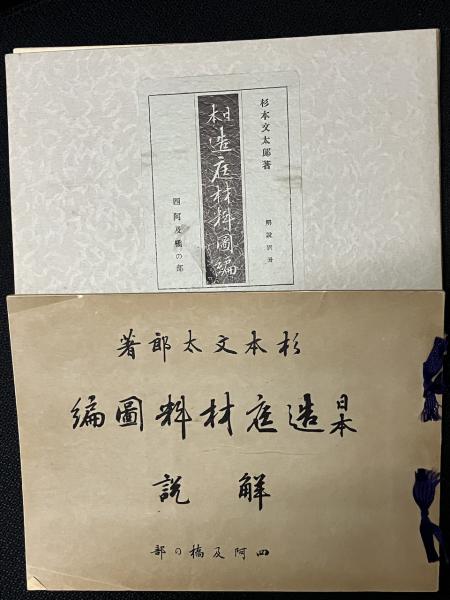 杉本文太郎著
日本造庭材料圖編
四阿及橋の部
解説別冊
杉本文太郎著
日本造庭材料圖編
解説
四阿及橋の部